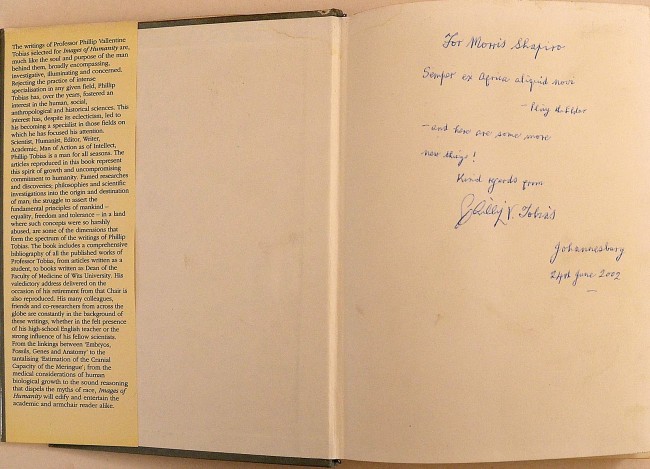 The writings of Professor Phillip Vallentine
Tobias selected for Images of Humanity are,
much like the soul and purpose of the man
behind them, broadly encompassing,
investigative, illuminating and concerned.
Rejecting the practice of intense
specialisation in any given field, Phillip
Tobias has, over the years, fostered an
interest in the human, social,
anthropological and historical sciences. This
interest has, despite its eclecticism, led to
his becoming a specialist in those fields on
which he has focused his attention.
Scientist, Humanist, Editor, Writer,
Academic, Man of Action as of Intellect,
Phillip Tobias is a man for all seasons. The
articles reproduced in this book represent
this spirit of growth and uncompromising
commitment to humanity. Famed researches
and discoveries; philosophies and scientific
investigations into the origin and destination
of man; the struggle to assert the
fundamental principles of mankind –
equality, freedom and tolerance – in a land
where such concepts were so harshly
abused, are some of the dimensions that
form the spectrum of the writings of Phillip
Tobias. The book includes a comprehensive
bibliography of all the published works of
Professor Tobias, from articles written as a
student, to books written as Dean of the
Faculty of Medicine of Wits University. His
valedictory address delivered on the
occasion of his retirement from that Chair is
also reproduced. His many colleagues,
friends and co-researchers from across the
globe are constantly in the background of
these writings, whether in the felt presence
of his high-school English teacher or the
strong influence of his fellow scientists.
From the linkings between 'Embryos,
Fossils, Genes and Anatomy' to the
tantalising 'Estimation of the Cranial
Capacity of the Meringue'; from the
medical considerations of human
biological growth to the sound reasoning
that dispels the myths of race, Images of
Humanity will edify and entertain the
academic and armchair reader alike.
For Morris Shapiro
Semper ex Africa aliquid novi
– Pliny the Elder
– and here are some more
new things!
Kind regards from
Phillip V. Tobias
Johannesburg
24th June 2002